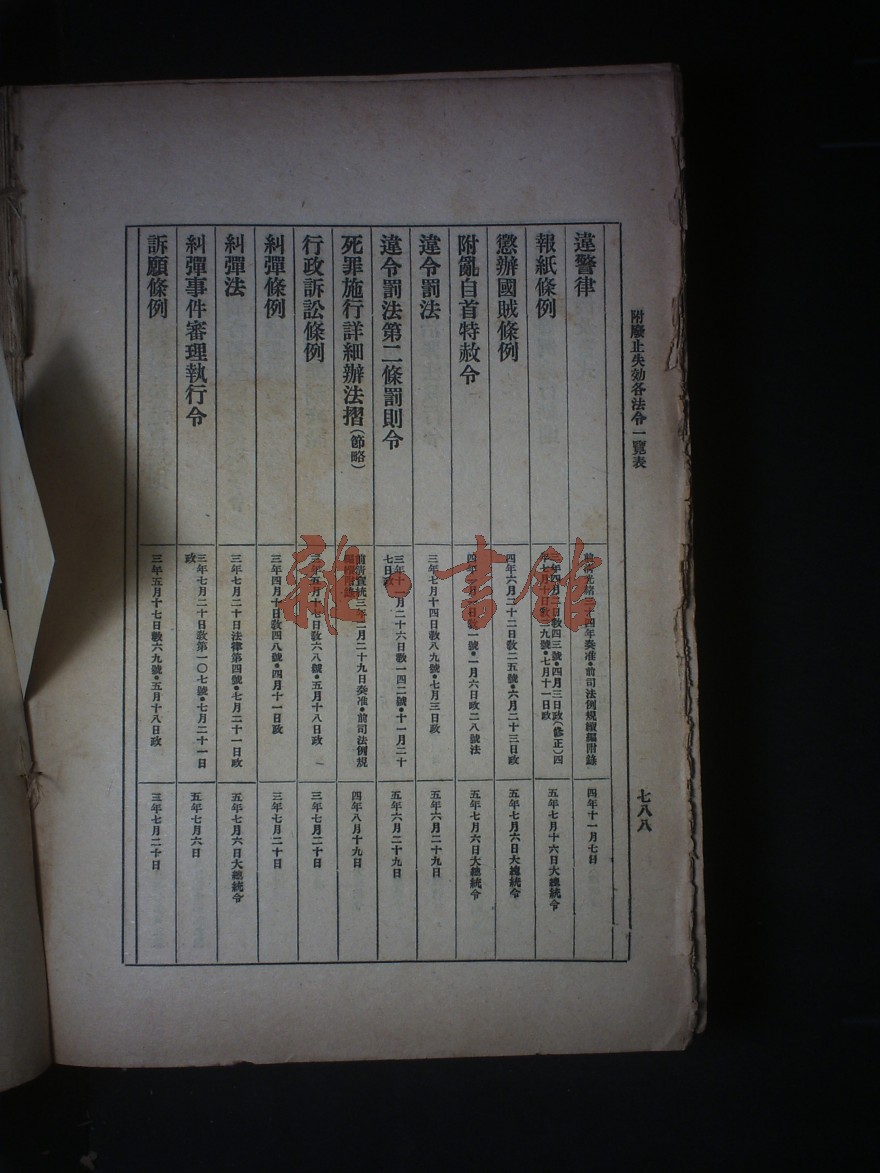 附廢止失効各法令一覽表
七八八
違警律
前清光緒三十四年奏准•前司法例規續編附錄
四年十一月七日
報紙條例
三年四月二日教四三號•四月三日政(修正)四
年七月十日教三九號•七月十一日政
五年七月十六日大總統令
懲辦國賊條例
四年六月二十二日教二五號•六月二十三日政
五年七月六日大總統令
附亂自首特赦令
四年一月 日教一號•一月六日政二八號法
五年七月六日大總統令
違令罰法
三年七月十四日教八九號•七月三日政
五年六月二十九日
違令罰法第二條罰則令
三年十一月二十六日教一四二號•十一月二十
七日政
五年六月二十九日
死罪施行詳細辦法摺(節略)
前清宣統三年二月二十九日奏准•前司法例規
四年八月十九日
行政訴訟條例
三年五月十七日教六八號•五月十八日政
三年七月二十日
糾彈條例
三年四月十日教四八號•四月十一日政
三年七月二十日
糾彈法
三年七月二十日法律第四號•七月二十一日政
五年七月六日大總統令
糾彈事件審理執行令
三年七月二十日教第一〇七號•七月二十一日
政
五年七月六日
訴願條例
三年五月十七日教六九號•五月十八日政
三年七月二十日
雜•書館